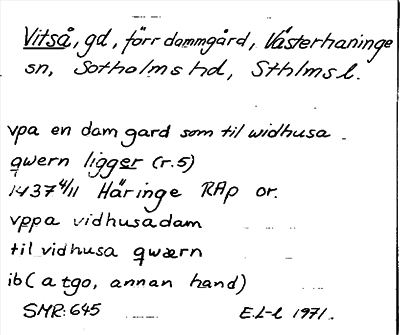 Vitså, gd, förr dammgård, Västerhaninge
sn, Sotholms hd, Sthlms l.
vpa en dam gard som til widhusa
qwern ligger (r.5)
1437 4/11 Häringe RAp or.
vppa vidhusadam
til vidhusa qwærn
ib (a tgo, annan hand)
SMR: 645 E.L-l 1971.